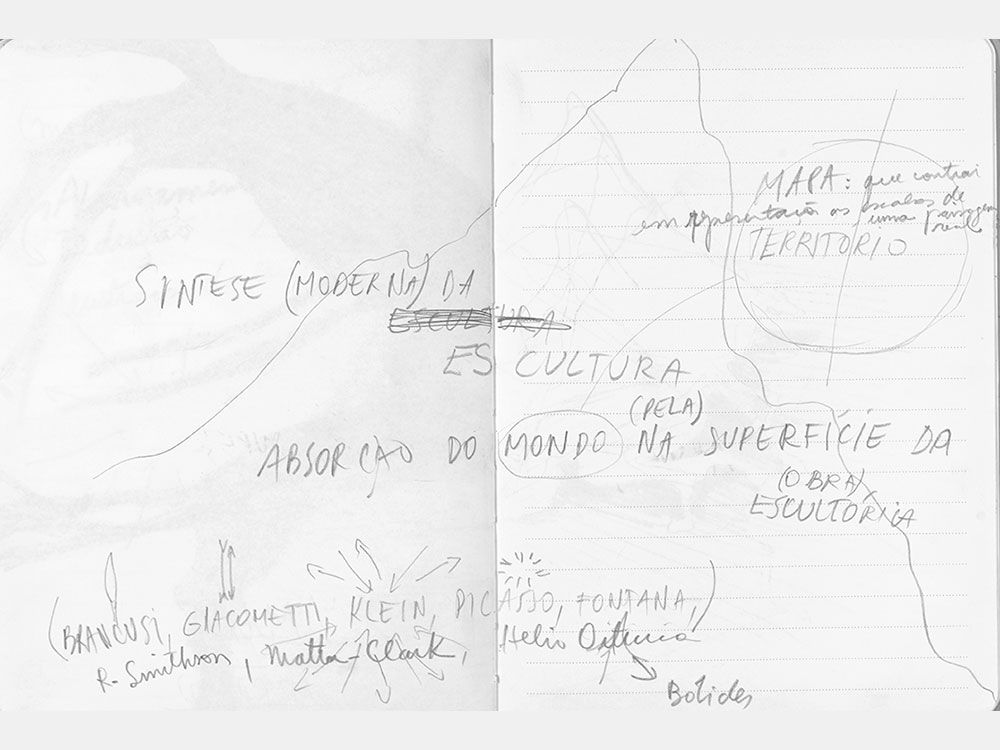 MAPA: que contrai
em representação as escalas de
uma paisagem real
TERRITORIO
SINTESE (MODERNA) DA
ESCULTURA
ESCULTURA
ABSORÇÃO DO MONDO (PELA) NA SUPERFÍCIE DA
(OBRA)
ESCULTÓRICA
(BRANCUSI, GIACOMETTI, KLEIN, PICASSO, FONTANA,)
R. Smithson, Matta-Clark, Helio Oiticica
Bólides